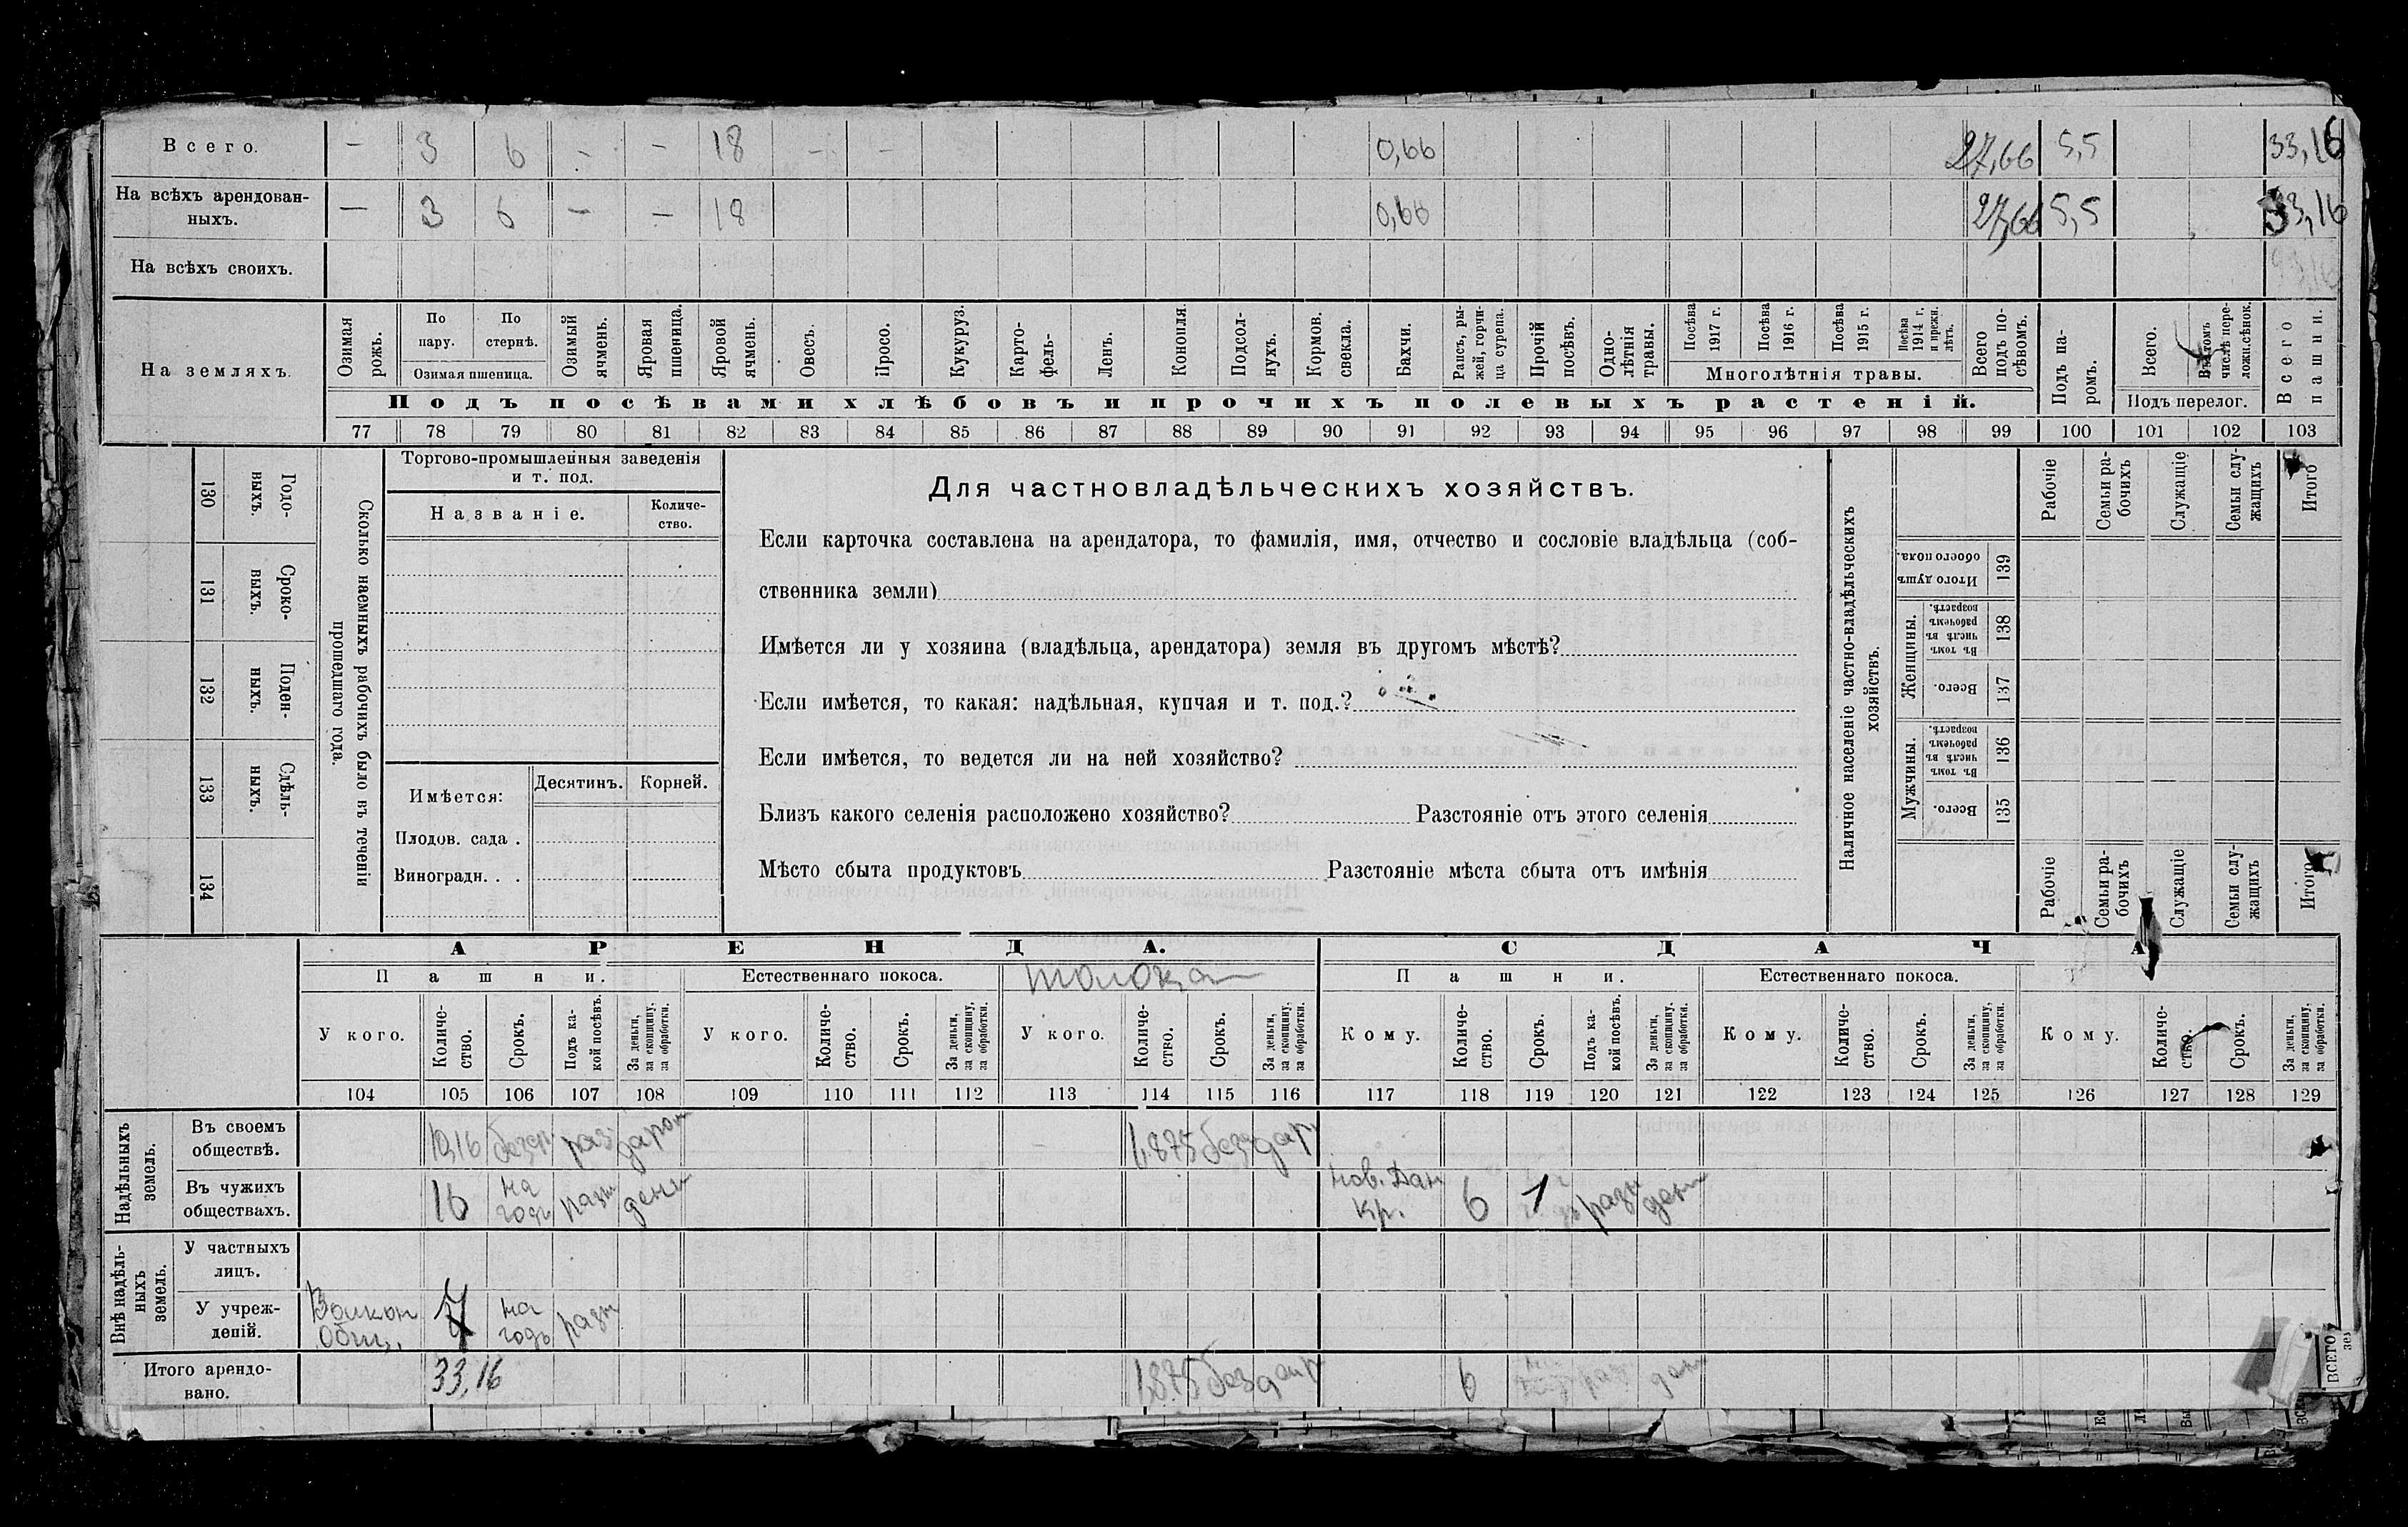 Всего. — 3 6 - - 18 - - 0,66 27,66 5,5 33,16
На всѣхъ арендован-
ныхъ. — 3 6 — — 18 0,66 27,66 5,5 33,16
На всѣхъ своихъ.
На земляхъ.
Озимая рожь.
По пару.
По стернѣ.
Озимая пшеница.
Озимый ячмень.
Яровая пшеница.
Яровой ячмень.
Овесъ.
Просо.
Кукуруз.
Карто-
фель.
Ленъ.
Конопля.
Подсол-
нухъ.
Кормов.
свекла.
Бахчи.
Рапсъ, ры-
жей, горчи-
ца сурепа.
Прочій
посѣвъ.
Одно-
лѣтнія
травы.
Посѣва
1917 г.
Посѣва
1916 г.
Посѣва
1915 г.
Посѣва
1914 г.
и прежн.
лѣтъ.
Многолѣтнія травы.
Всего
подъ по-
сѣвомъ.
Подъ па-
ромъ.
Всего.
Въ томъ
числѣ пере-
ложн.сѣнок.
Подъ перелог.
Всего
пашни.
Подъ посѣвами хлѣбовъ и прочихъ полевыхъ растеній.
77 78 79 80 81 82 83 84 85 86 87 88 89 90 91 92 93 94 95 96 97 98 99 100 101 102 103
130 Годо-
выхъ.
131 Сроко-
выхъ.
132 Поден-
ныхъ.
133 Сдѣль-
ныхъ.
134
Сколько наемныхъ рабочихъ было въ теченіи
прошедшаго года.
Торгово-промышленныя заведенія
и т. под.
Названіе.
Количе-
ство.
Имѣется:
Десятинъ. Корней.
Плодов. сада .
Виноградн. . .
Для частновладѣльческихъ хозяйствъ.
Если карточка составлена на арендатора, то фамилія, имя, отчество и сословіе владѣльца (соб-
ственника земли)
Имѣется ли у хозяина (владѣльца, арендатора) земля въ другомъ мѣстѣ?
Если имѣется, то какая: надѣльная, купчая и т. под.?
Если имѣется, то ведется ли на ней хозяйство?
Близъ какого селенія расположено хозяйство? Разстояніе отъ этого селенія
Мѣсто сбыта продуктовъ Разстояніе мѣста сбыта отъ имѣнія
Наличное населеніе частно-владѣльческихъ
хозяйствъ.
Рабочіе
Семьи ра-
бочихъ
Служащіе
Семьи слу-
жащихъ
Итого
Итого душъ
обоего пола.
139
Женщины.
Въ томъ
числѣ въ
рабочемъ
возрастѣ.
138
Всего.
137
Мужчины.
Въ томъ
числѣ въ
рабочемъ
возрастѣ.
136
Всего.
135
Рабочіе
Семьи ра-
бочихъ
Служащіе
Семьи слу-
жащихъ
Итого
АРЕНДА. СДАЧА
Пашни. Естественнаго покоса. толока Пашни. Естественнаго покоса.
У кого.
Количе-
ство.
Срокъ.
Подъ ка-
кой посѣвъ.
За деньги,
за скопщину,
за обработки.
У кого.
Количе-
ство.
Срокъ.
За деньги,
за скопщину,
за обработки.
У кого.
Количе-
ство.
Срокъ.
За деньги,
за скопщину,
за обработки.
Кому.
Количе-
ство.
Срокъ.
Подъ ка-
кой посѣвъ.
За деньги,
за скопщину,
за обработки.
Кому.
Количе-
ство.
Срокъ.
За деньги,
за скопщину,
за обработки.
Кому.
Количе-
ство.
Срокъ.
За деньги,
за скопщину,
за обработки.
104 105 106 107 108 109 110 111 112 113 114 115 116 117 118 119 120 121 122 123 124 125 126 127 128 129
Надѣльныхъ
земель.
Въ своемъ
обществѣ. 10,16 1,875
Въ чужихъ
обществахъ. 16 на годъ разн ден нов. Дан Кр. 6 1 разн ден
Внѣ надѣль-
ныхъ
земель.
У частныхъ
лицъ.
У учреж-
деній. Общ. 7 на годъ разн
Итого арендо-
вано. 33,16 1,875 6
ВСЕГО